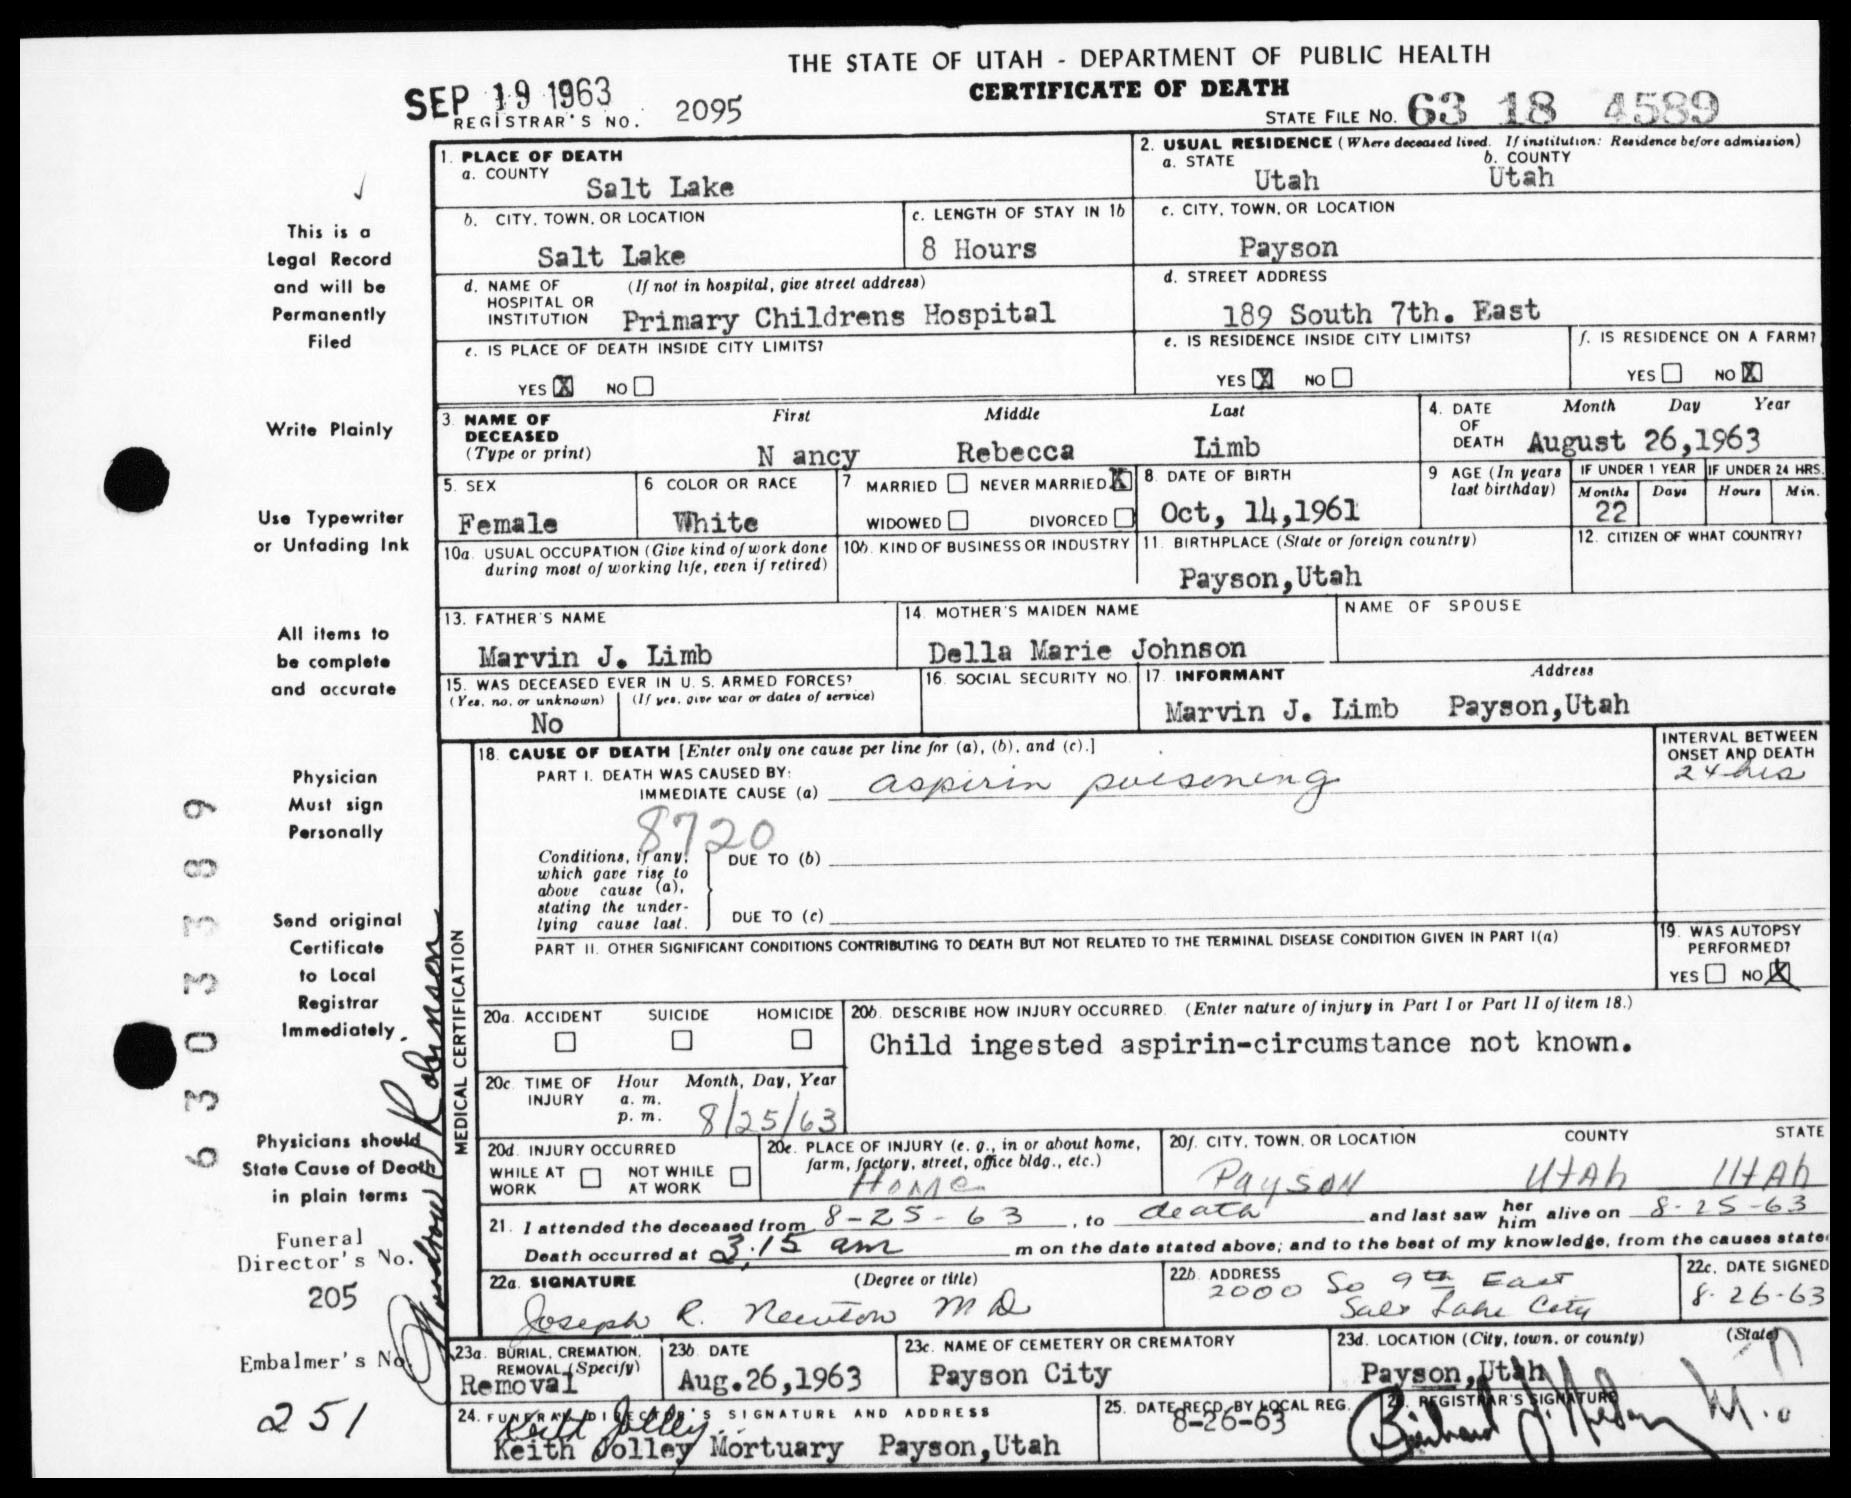 THE STATE OF UTAH - DEPARTMENT OF PUBLIC HEALTH
CERTIFICATE OF DEATH
SEP 19 1963
REGISTRAR'S NO. 2095
STATE FILE NO. 63 18 4589
This is a
Legal Record
and will be
Permanently
Filed
Write Plainly
Use Typewriter
or Unfading Ink
All items to
be complete
and accurate
Physician
Must sign
Personally
Send original
Certificate
to Local
Registrar
Immediately.
Physicians should
State Cause of Death
in plain terms
Funeral
Director's No.
205
Embalmer's No.
251
6303389
Robinson
1. PLACE OF DEATH
a. COUNTY
Salt Lake
2. USUAL RESIDENCE (Where deceased lived. If institution: Residence before admission)
a. STATE b. COUNTY
Utah Utah
b. CITY, TOWN, OR LOCATION
Salt Lake
c. LENGTH OF STAY IN 1b
8 Hours
c. CITY, TOWN, OR LOCATION
Payson
d. NAME OF HOSPITAL OR INSTITUTION (If not in hospital, give street address)
Primary Childrens Hospital
d. STREET ADDRESS
189 South 7th. East
e. IS PLACE OF DEATH INSIDE CITY LIMITS?
YES X NO
e. IS RESIDENCE INSIDE CITY LIMITS?
YES X NO
f. IS RESIDENCE ON A FARM?
YES NO X
3. NAME OF DECEASED (Type or print)
First Middle Last
N ancy Rebecca Limb
4. DATE OF DEATH Month Day Year
August 26,1963
5. SEX
Female
6 COLOR OR RACE
White
7 MARRIED NEVER MARRIED X
WIDOWED DIVORCED
8. DATE OF BIRTH
Oct, 14,1961
9 AGE (In years last birthday)
IF UNDER 1 YEAR IF UNDER 24 HRS.
Months Days Hours Min.
22
10a. USUAL OCCUPATION (Give kind of work done during most of working life, even if retired)
10b. KIND OF BUSINESS OR INDUSTRY
11. BIRTHPLACE (State or foreign country)
Payson,Utah
12. CITIZEN OF WHAT COUNTRY?
13. FATHER'S NAME
Marvin J. Limb
14. MOTHER'S MAIDEN NAME
Della Marie Johnson
NAME OF SPOUSE
15. WAS DECEASED EVER IN U. S. ARMED FORCES?
(Yes, no, or unknown) (If yes, give war or dates of service)
No
16. SOCIAL SECURITY NO.
17 INFORMANT Address
Marvin J. Limb Payson,Utah
MEDICAL CERTIFICATION
18. CAUSE OF DEATH [Enter only one cause per line for (a), (b), and (c).]
PART I. DEATH WAS CAUSED BY:
IMMEDIATE CAUSE (a) aspirin poisoning
INTERVAL BETWEEN ONSET AND DEATH
24 hrs
8720
Conditions, if any, which gave rise to above cause (a), stating the underlying cause last.
DUE TO (b)
DUE TO (c)
PART II. OTHER SIGNIFICANT CONDITIONS CONTRIBUTING TO DEATH BUT NOT RELATED TO THE TERMINAL DISEASE CONDITION GIVEN IN PART I(a)
19. WAS AUTOPSY PERFORMED?
YES NO X
20a. ACCIDENT SUICIDE HOMICIDE
20b. DESCRIBE HOW INJURY OCCURRED. (Enter nature of injury in Part I or Part II of item 18.)
Child ingested aspirin-circumstance not known.
20c. TIME OF INJURY Hour Month, Day, Year
a. m.
p. m. 8/25/63
20d. INJURY OCCURRED
WHILE AT WORK NOT WHILE AT WORK
20e. PLACE OF INJURY (e. g., in or about home, farm, factory, street, office bldg., etc.)
Home
20f. CITY, TOWN, OR LOCATION COUNTY STATE
Payson Utah Utah
21. I attended the deceased from 8-25-63, to death and last saw her him alive on 8-25-63
Death occurred at 3:15 am m on the date stated above; and to the best of my knowledge, from the causes state
22a. SIGNATURE (Degree or title)
Joseph R. Newton MD
22b. ADDRESS
2000 So 9th East
Salt Lake City
22c. DATE SIGNED
8-26-63
23a. BURIAL, CREMATION, REMOVAL (Specify)
Removal
23b. DATE
Aug.26,1963
23c. NAME OF CEMETERY OR CREMATORY
Payson City
23d. LOCATION (City, town, or county) (State)
Payson,Utah
24. FUNERAL DIRECTOR'S SIGNATURE AND ADDRESS
Keith Jolley
Keith Jolley Mortuary Payson,Utah
25. DATE RECD. BY LOCAL REG.
8-26-63
REGISTRAR'S SIGNATURE
M.D